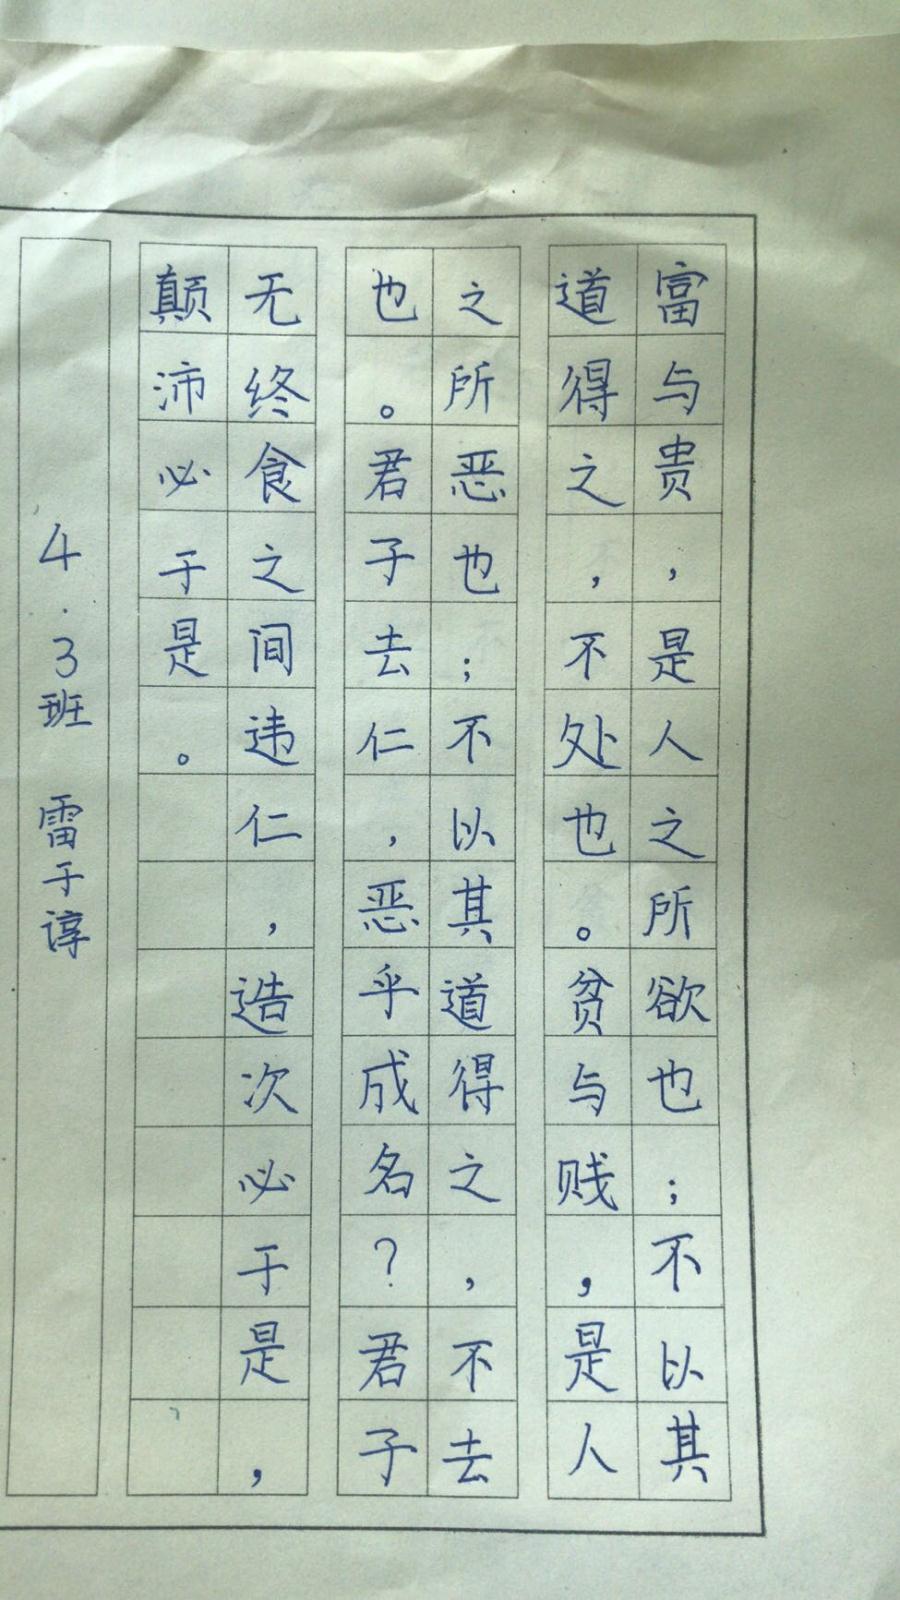 富与贵，是人之所欲也；不以其
道得之，不处也。贫与贱，是人
之所恶也；不以其道得之，不去
也。君子去仁，恶乎成名？君子
无终食之间违仁，造次必于是，
颠沛必于是。
4.3班 雷于谆